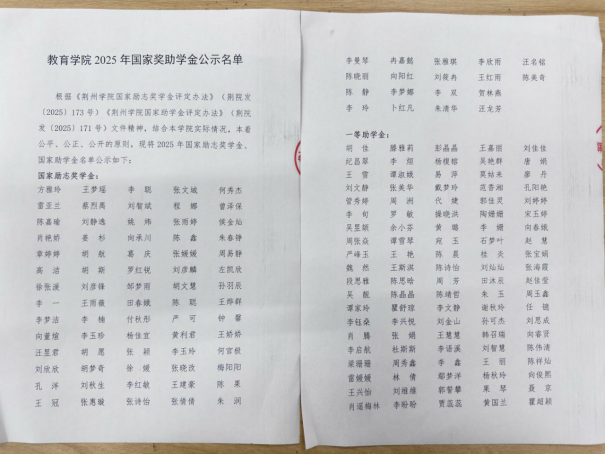 教育学院 2025 年国家奖助学金公示名单
根据《荆州学院国家励志奖学金评定办法》（荆院发
〔2025〕173 号）《荆州学院国家助学金评定办法》（荆院
发〔2025〕171 号）文件精神，结合本学院实际情况，本着
公平、公正、公开的原则，现将 2025 年国家励志奖学金、
国家助学金名单公示如下：
国家励志奖学金：
方雅玲 王梦瑶 李聪 张文斌 何秀杰
雷亚兰 蔡烈禹 刘智斌 程娜 曾泽保
陈嘉瑜 刘静逃 姚炜 张雨婷 侯金灿
肖艳娇 姜杉 向承川 陈鑫 朱春铮
章婷婷 胡航 葛庆 张媛媛 周易静
高洁 胡斯 罗红祝 刘彦麟 左凯欣
徐张源 刘彦锋 邹梦雨 胡文慧 孙羽辰
李一 王雨薇 田春娥 陈聪 王烨群
李梦洁 李楠 付秋彤 严可 钟馨
向萱煊 李玉珍 杨佳宜 黄利君 王娇娇
汪昱君 胡愿 张颖 李玉玲 何官极
刘欣欣 胡梦奇 徐媛 张晓改 梅阳阳
孔洋 刘秋生 李红敏 王建豪 陈果
王冠 张惠璇 张诗怡 张倩倩 朱润
李曼琴 冉嘉懿 张雅琪 李欣雨 汪名铭
陈晓丽 向阳红 刘筱冉 王红雨 陈美奇
陈静 李梦娜 李双 贺林燕
李玲 卜红凡 朱清华 汪龙芳
一等助学金：
胡佳 滕雅莉 彭晶晶 王嘉丽 刘佳佳
纪昌翠 李烜 杨榎榕 吴艳群 唐娟
王雪 谭淑娥 易萍 莫姑来 廖丹
刘文静 张美华 戴梦玲 范香湘 孔阳艳
管秀婷 周洲 代婕 郭佳灵 刘婷婷
李旬 罗敏 操晓洪 陶姗姗 宋玉婷
吴昱颉 余小芬 黄璐 李姗 向春娥
周张焱 谭雪琴 宛玉 石梦叶 赵慧
严峰玉 王艳 陈晨 桂炎 张宝娟
魏然 王斯淇 陈诗怡 刘灿灿 张海霞
段思雅 陈思晗 周芳 田沐辰 赵佳莹
吴靓 陈晶晶 陈靖哲 朱玉 周玉鑫
谭家玲 瞿舒琼 李文静 谢秋玲 任镜
李钰燊 李兴悦 刘金山 孙可杰 刘思成
肖腾 张娟 王慧慧 韩召瑞 向睿贤
李启航 杜斯斯 李语溪 刘智慧 陈伟清
梁珊珊 周秀鑫 李鑫 王丽 陈祥灿
雷媛媛 林倩 鄢梦洋 杨秋玲 向俊熙
王兴怡 刘维维 郭誓攀 果琴 聂京
肖遥梅林 李盼盼 贾蕊蕊 黄国兰 瞿超颖